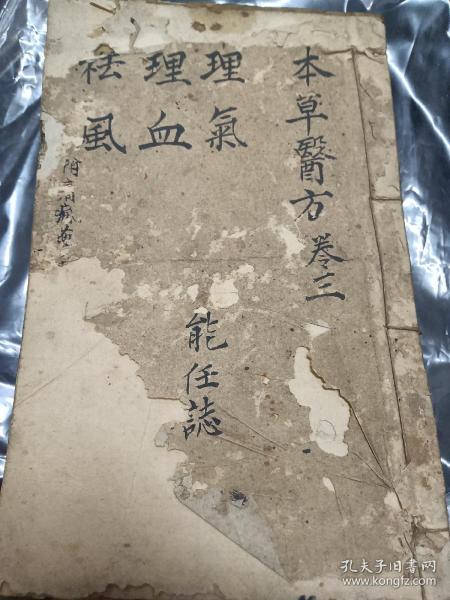 本草醫方 卷三
理氣
理血
祛風
能任誌
孔夫子旧书网
www.kongfz.com